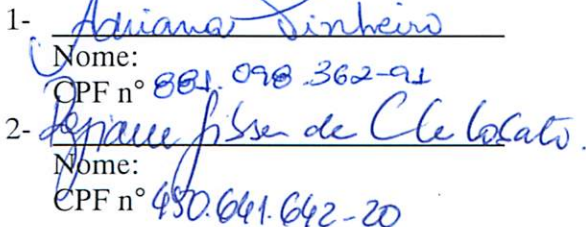 1- Adriana Pinheiro
Nome:
CPF nº 881.098.362-91
2- de
Nome:
CPF nº 450.641.642-20